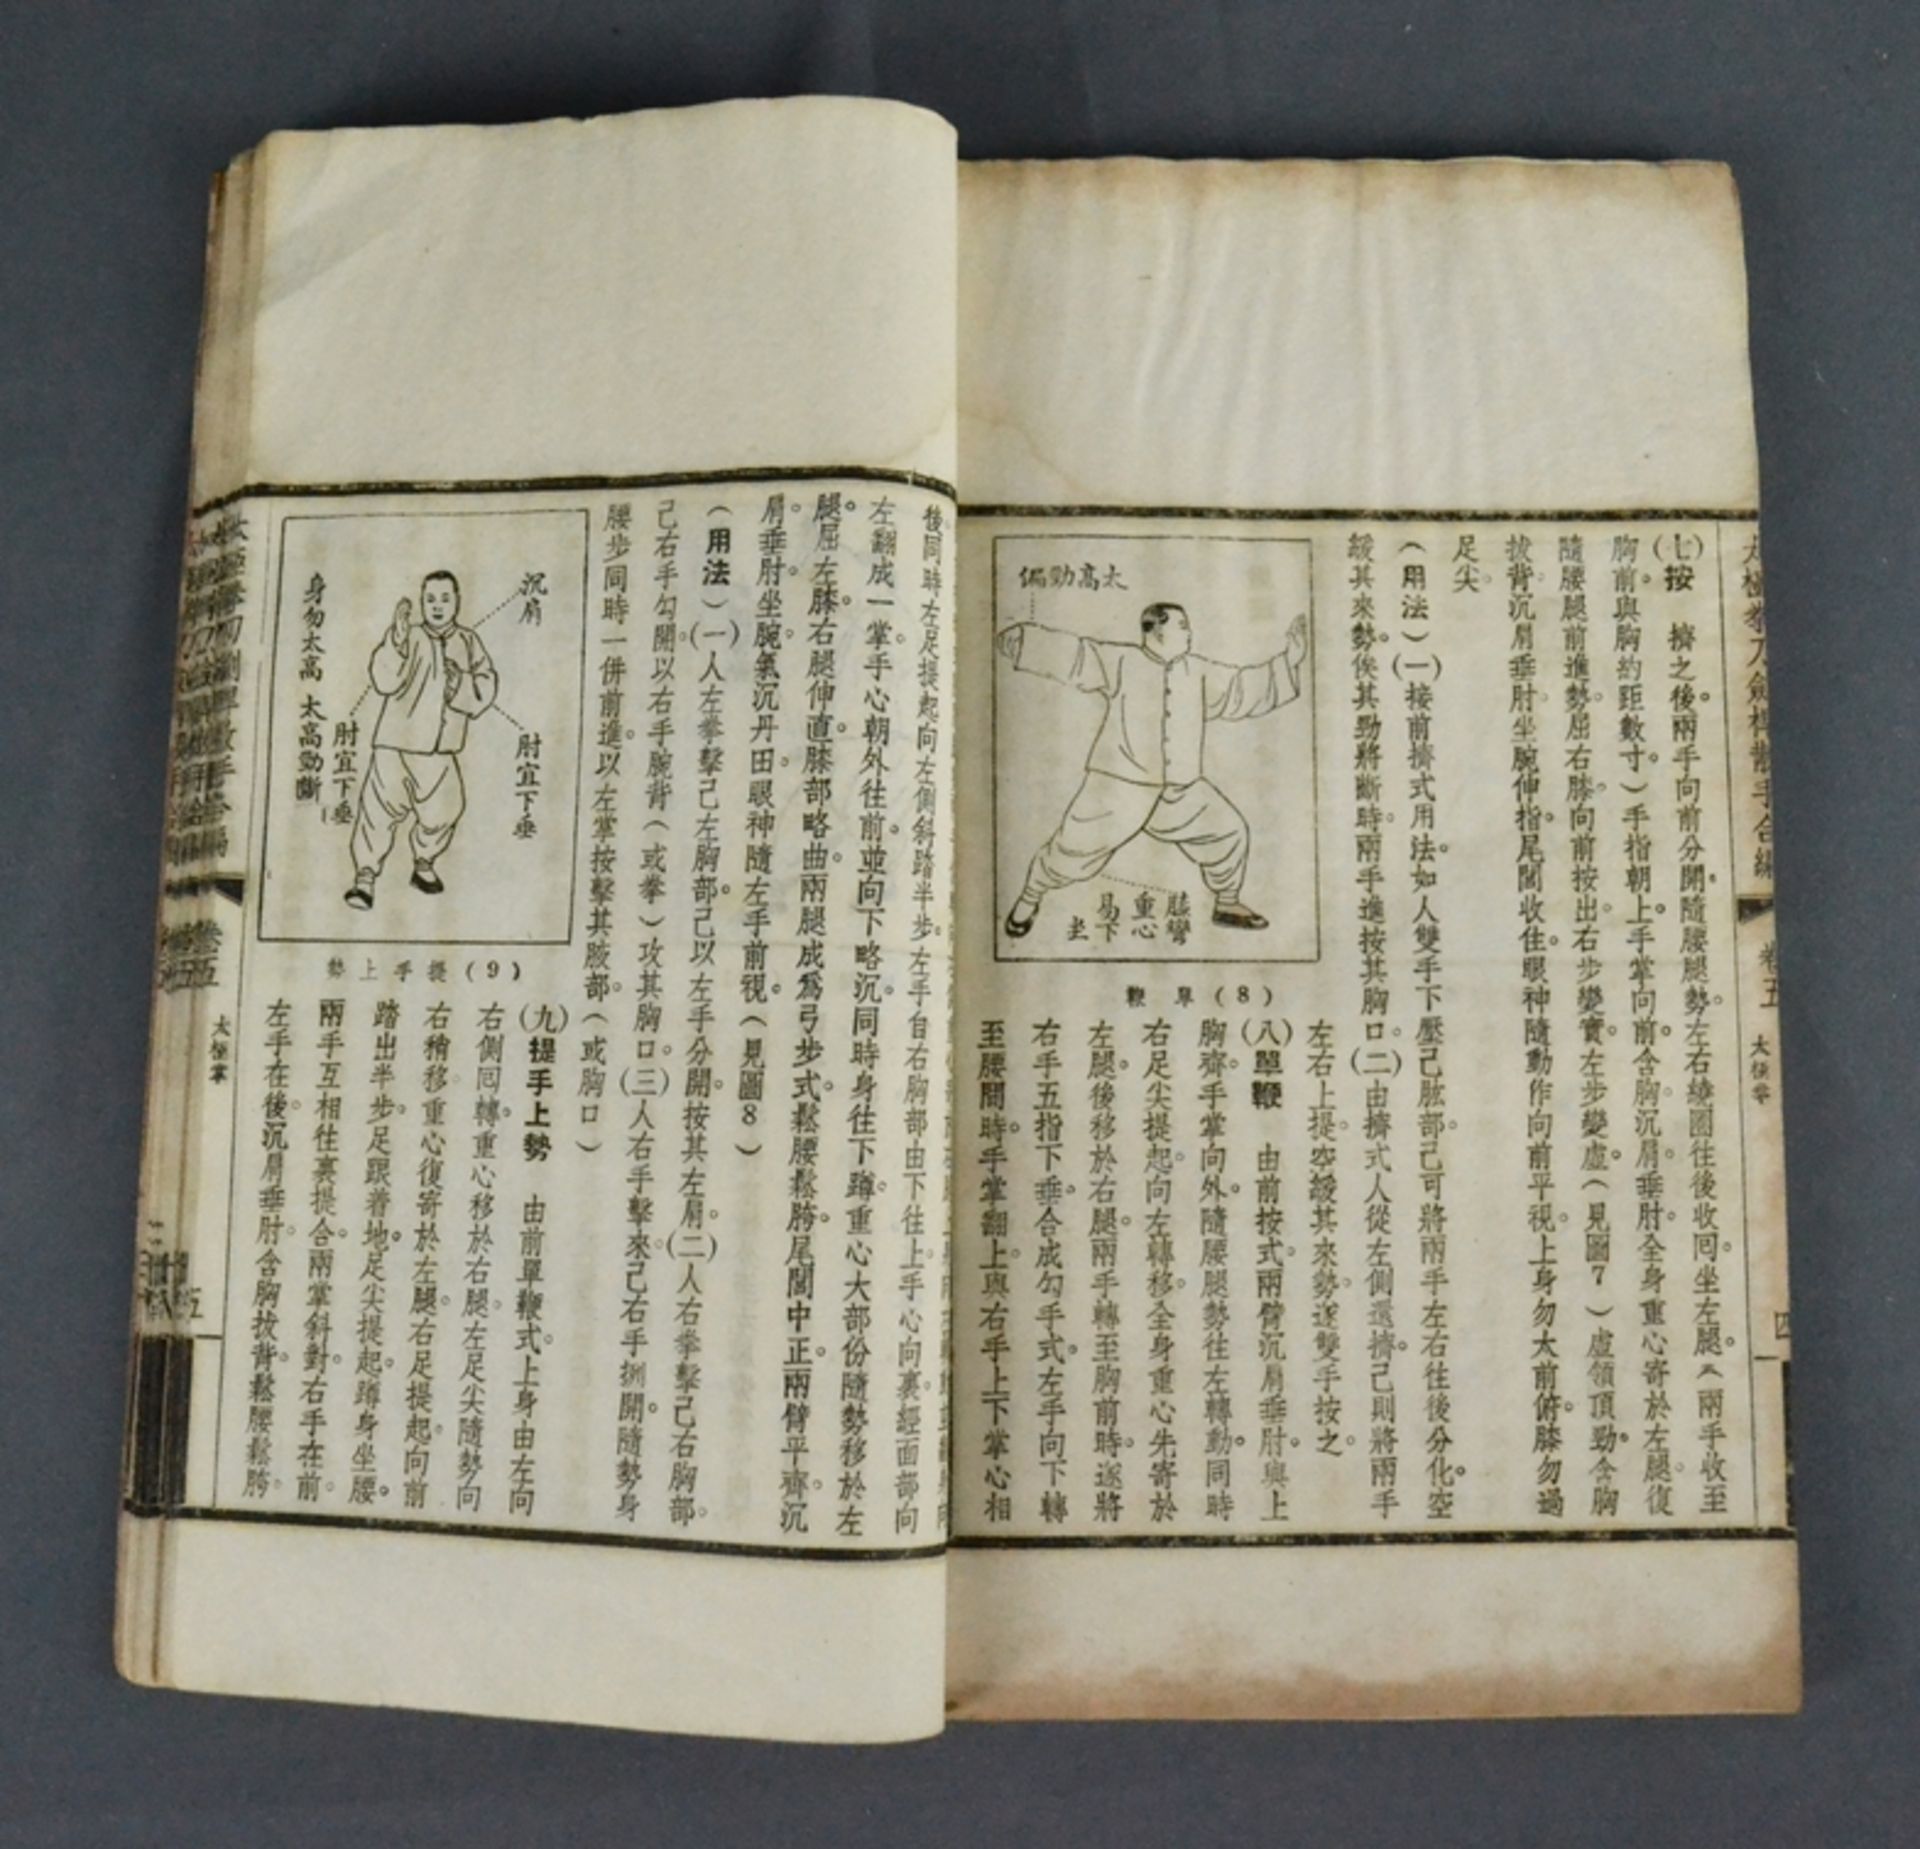 太極拳刀劍桿散手合編
卷五
太極拳
四
(七)按　擠之後兩手向前分開。隨腰腿勢。左右繞圈往後收回。坐左腿。(兩手收至
胸前。與胸約距數寸)手指朝上。手掌向前。含胸沉肩垂肘。全身重心寄於左腿。復
隨腰腿前進勢。屈右膝。向前按出。右步變實。左步變虛。(見圖7)虛領頂勁。含胸
拔背。沉肩垂肘。坐腕伸指。尾閭收住。眼神隨動作向前平視。上身勿太前俯。膝勿過
足尖。
(用法)(一)接前擠式用法。如人雙手下壓己肱部。己可將兩手左右往後分化。空
緩其來勢。俟其勁將斷時。兩手進按其胸口。(二)由擠式人從左側還擠。己則將兩手
左右上提。空緩其來勢。遂雙手按之。
太高勁偏
膝彎
重心
易下
坐
(8)單鞭
(八)單鞭　由前按式。兩臂沉肩垂肘。與上
胸齊。手掌向外。隨腰腿勢往左轉動。同時
右足尖提起。向左轉移。全身重心先寄於
左腿。後移於右腿。兩手轉至胸前時。遂將
右手五指下垂。合成勾手式。左手向下轉
至腰間時。手掌翻上。與右手上下掌心相
後同時左足提起。向左側斜踏半步。左手自右胸部由下往上。手心向裏。經面部向
左翻成一掌。手心朝外往前。並向下略沉。同時身往下蹲。重心大部份隨勢移於左
腿。屈左膝。右腿伸直。膝部略曲。兩腿成爲弓步式。鬆腰鬆胯。尾閭中正。兩臂平齊。沉
肩。垂肘。坐腕。氣沉丹田。眼神隨左手前視。(見圖8)
(用法)(一)人左拳擊己左胸部。己以左手分開。按其左肩。(二)人右拳擊己右胸部。
己右手勾開。以右手腕背(或拳)攻其胸口。(三)人右手擊來。己右手捌開。隨勢身
腰步同時一併前進。以左掌按擊其腋部。(或胸口)
沉肩
肘宜下垂
肘宜下垂
身勿太高 太高勁斷
(9)提手上勢
(九)提手上勢　由前單鞭式。上身由左向
右側回轉。重心移於右腿。左足尖隨勢向
右稍移。重心復寄於左腿。右足提起。向前
踏出半步。足跟着地。足尖提起。蹲身坐腰。
兩手互相往裏提合。兩掌斜對。右手在前。
左手在後。沉肩垂肘。含胸拔背。鬆腰鬆胯。
卷五
太極拳
五